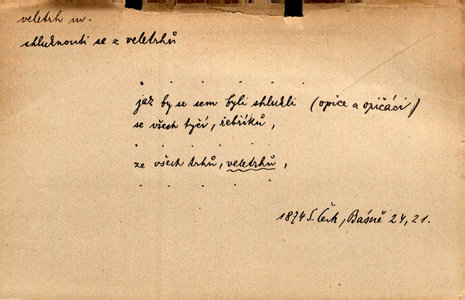 veletrh m.
shluknouti se z veletrhů
. . . . . .
jak by se sem byli shlukli (opice a opičáci)
se všech tyčí, žebříků,
. . . . . .
ze všech trhů, veletrhů,
. . . . . .
1874 S. Čech, Básně 24, 21.